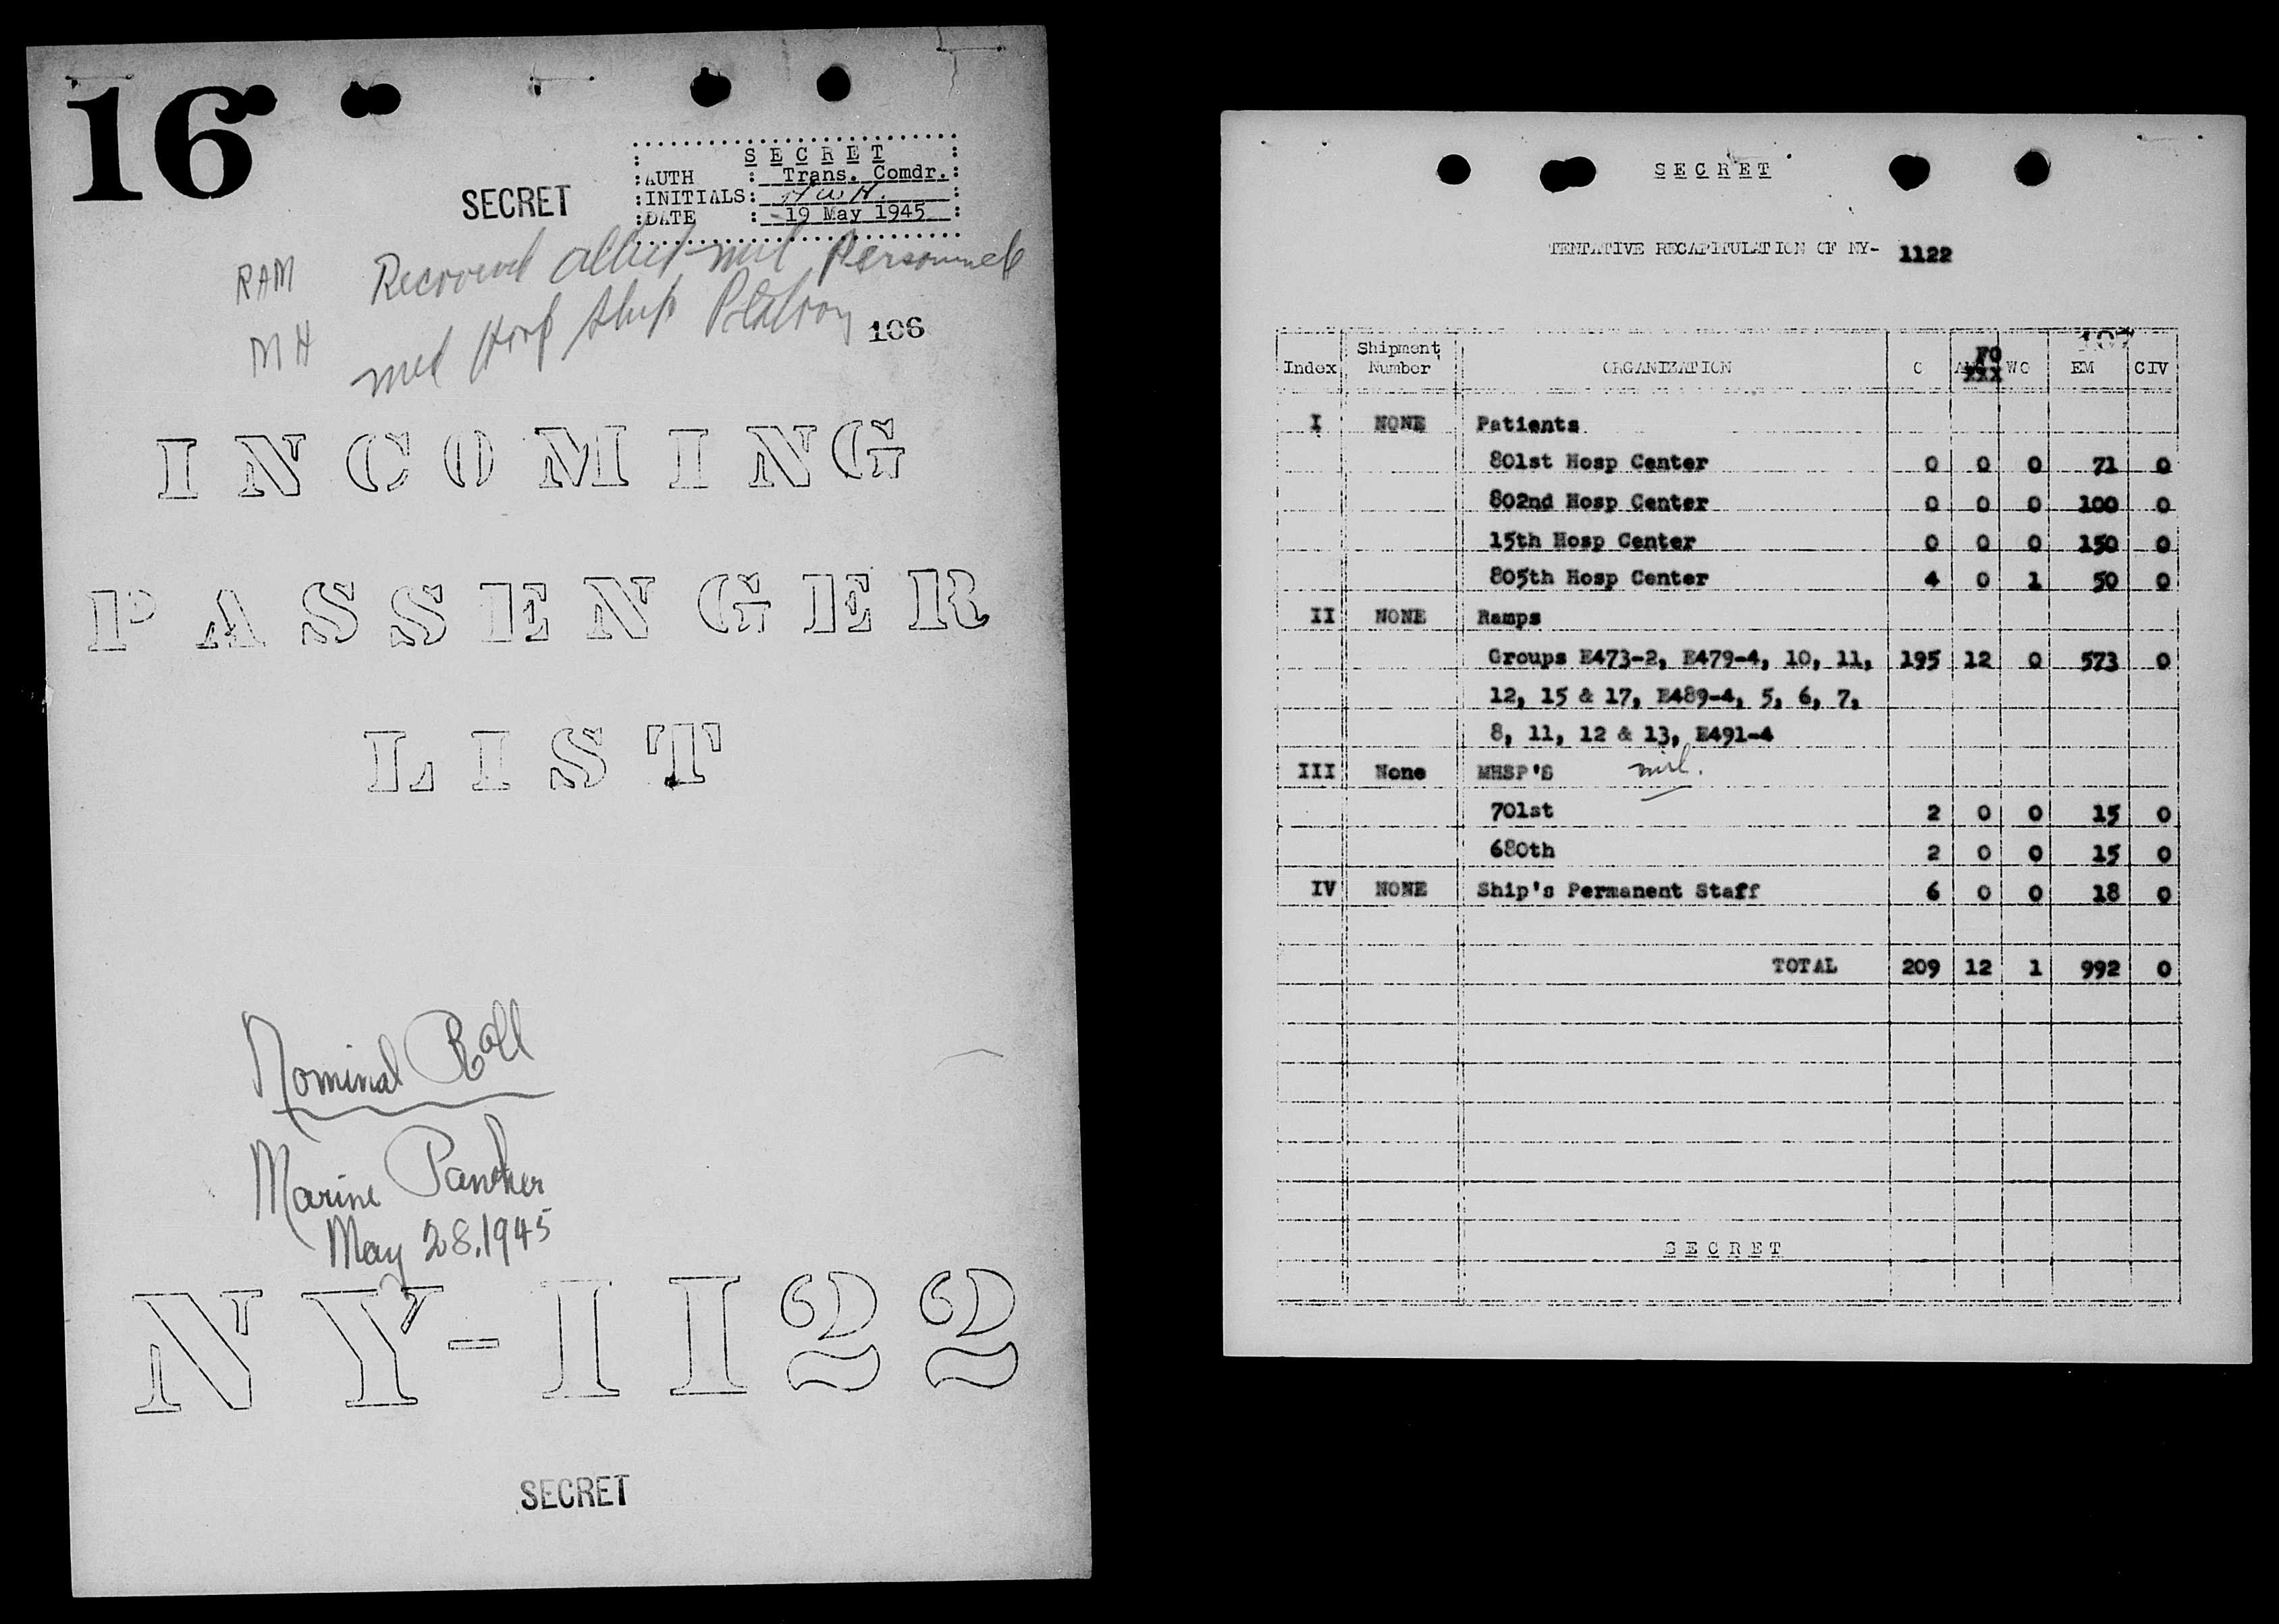 16
SECRET
S E C R E T
AUTH : Trans. Comdr.:
INITIALS: H W H.
DATE : 19 May 1945 :
RAM Recovered allied mil Personnel
MH med Hosp Ship Platoon
106
INCOMING
PASSENGER
LIST
Nominal Roll
Marine Panther
May 28, 1945
NY-1122
SECRET
S E C R E T
TENTATIVE RECAPITULATION OF NY- 1122
107
Index Shipment Number ORGANIZATION O FO XXX WO EM CIV
I NONE Patients
801st Hosp Center 0 0 0 71 0
802nd Hosp Center 0 0 0 100 0
15th Hosp Center 0 0 0 150 0
805th Hosp Center 4 0 1 50 0
II NONE Ramps
Groups E473-2, E479-4, 10, 11, 195 12 0 573 0
12, 15 & 17, E489-4, 5, 6, 7,
8, 11, 12 & 13, E491-4
III None MHSP'S mil.
701st 2 0 0 15 0
680th 2 0 0 15 0
IV NONE Ship's Permanent Staff 6 0 0 18 0
TOTAL 209 12 1 992 0
S E C R E T